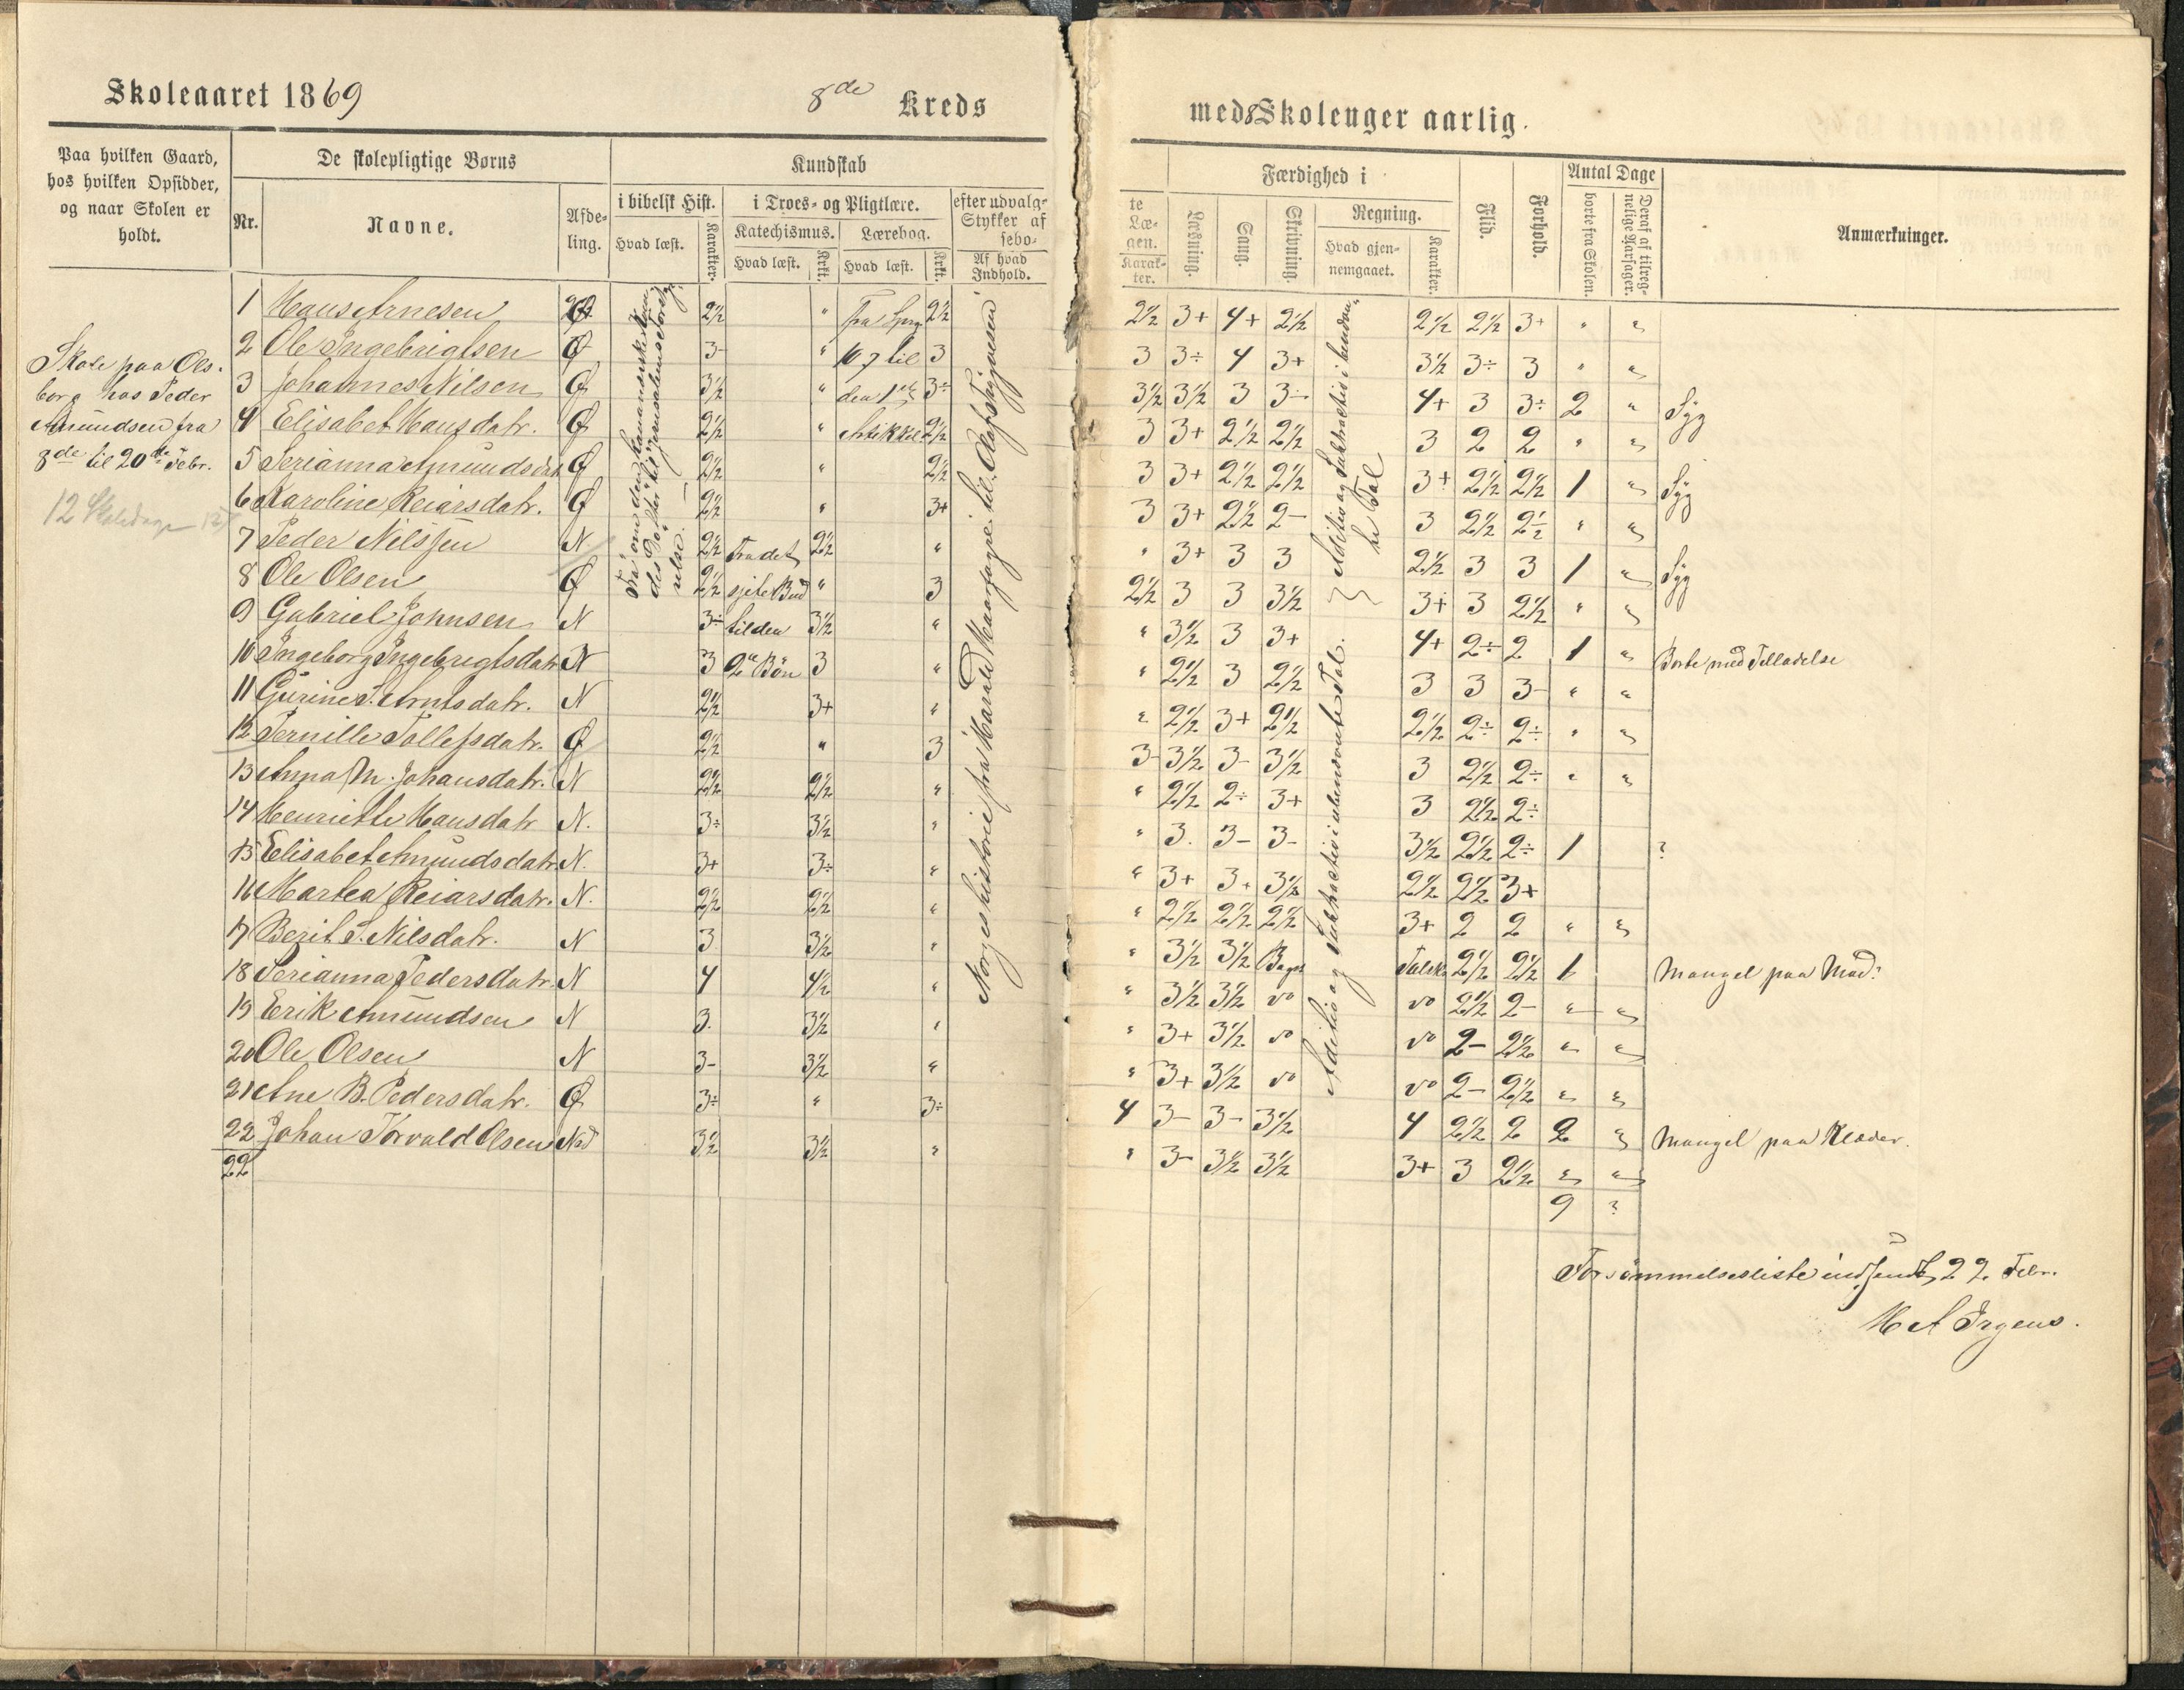 Skoleaaret 1869
8de Kreds
Paa hvilken Gaard,
hos hvilken Opsidder,
og naar Skolen er
holdt.
De skolepligtige Børns
Nr.
Navne.
Afde-
ling.
Kundskab
i bibelsk Hist.
Hvad læst.
Karakter.
i Troes- og Pligtlære.
Katechismus.
Hvad læst.
Krkt.
Lærebog.
Hvad læst.
Krkt.
efter udvalg-
Stykker af
sebo-
Af hvad
Indhold.
Skole paa Ols-
borg hos Peder
Amundsen fra
8de til 20de Febr.
12 Skoledage
1 Hans Arnesen Ø 2½ " Fra Spm 2½
2 Ole Ingebrigtsen Ø 3- " 107 til 3
3 Johannes Nilsen Ø 3½ " den 1ste 3÷
4 Elisabet Hansdatr. Ø 2½ " Artikkel 2½
5 Serianna Amundsdatr Ø 2½ " 2½
6 Karoline Reiarsdatr. Ø 2½ " 3+
7 Peder Nilssen N. 2½ Fra det 2½ "
8 Ole Olsen Ø 2½ sjete Bud " 3
9 Gabriel Johnsen N 3÷ til den 3½ "
10 Ingeborg Ingebrigtsdatr N 3 2den Bön 3 "
11 Gurine S. Arntsdatr. N 2½ 3+ "
12 Pernille Tollefsdatr. Ø 2½ " 3
13 Anna M. Johansdatr. N 2½ 2½ "
14 Henriette Hansdatr N. 3÷ 3½ "
15 Elisabet Amundsdatr N. 3+ 3÷ "
16 Martea Reiarsdatr. N. 2½ 2½ "
17 Berit S. Nilsdatr. N 3. 3½ "
18 Serianna Pedersdatr. N 4 4½ "
19 Erik Amundsen N 3. 3½ "
20 Ole Olsen N 3- 3½ "
21 Ane B. Pedersdatr. Ø 3÷ " 3÷
22 Johan Torvald Olsen Ned 3½ 3½ "
22
Fra om den
des Dø
til Jerusalems Forstyr
relse.
Norges historie fra Harald Haarfagre til Olaf Trygvesen
med 8 Skoleuger aarlig.
te
Læ-
gen.
Karak-
ter.
Færdighed i
Læsning.
Sang.
Skrivning.
Regning.
Hvad gjen-
nemgaaet.
Karakter.
Flid.
Forhold.
Antal Dage
borte fra Skolen.
Deraf af tilreg-
nelige Aarsager.
Anmærkninger.
2½ 3+ 4+ 2½ 2½ 2½ 3+ " "
3 3÷ 4 3+ 3½ 3÷ 3 " "
3½ 3½ 3 3- 4+ 3 3÷ 2 " Syg
3 3+ 2½ 2½ 3 2 2 " "
3 3+ 2½ 2½ 3+ 2½ 2½ 1 " Syg
3 3+ 2½ 2- 3 2½ 2½ " "
" 3+ 3 3 2½ 3 3 1 " Syg
2½ 3 3 3½ 3+ 3 2½ " "
" 3½ 3 3+ 4+ 2÷ 2 1 " Borte med Tilladelse
" 2½ 3 2½ 3 3 3- " "
" 2½ 3+ 2½ 2½ 2÷ 2÷ " "
3- 3½ 3- 3½ 3 2½ 2÷ " "
" 2½ 2÷ 3+ 3 2½ 2÷
" 3. 3- 3- 3½ 2½ 2÷ 1 ?
" 3+ 3+ 3½ 2½ 2½ 3+
" 2½ 2½ 2½ 3+ 2 2 " "
" 3½ 3½ 2½ 2½ 1 Mangel paa Mad.
" 3½ 3½ vo vo 2½ 2- " "
" 3+ 3½ vo vo 2- 2½ " "
" 3+ 3½ vo vo 2- 2½ " "
4 3- 3- 3½ 4 2½ 2 2 " Mangel paa Klæder.
" 3- 3½ 3½ 3+ 3 2½ " "
9 ?
Aditio og Subtractio i benævn-
te Tal
Aditio og Subtractio i ubenævnte Tal.
Forsømmelsesliste indsendt 22 Febr.
H A Irgens.